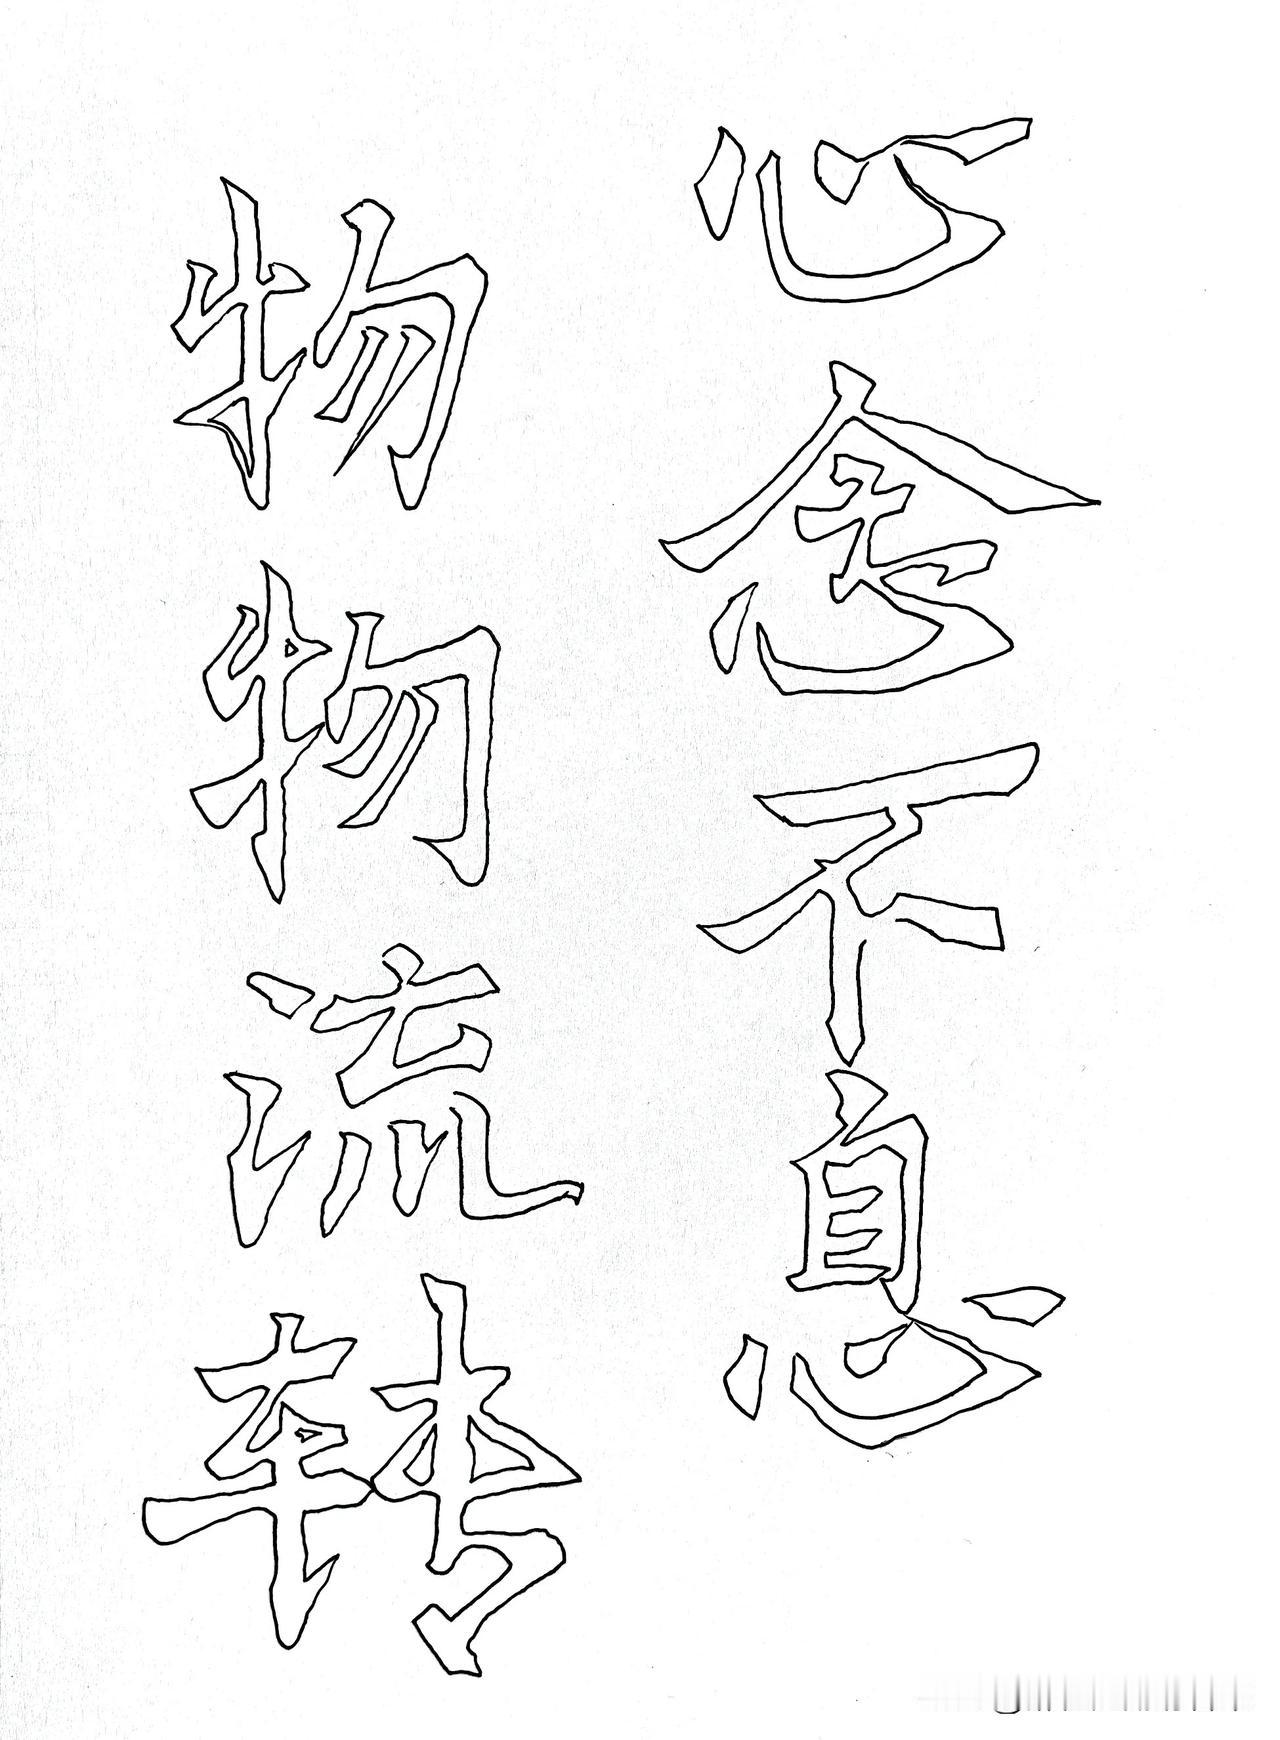 心念不息
物物流转